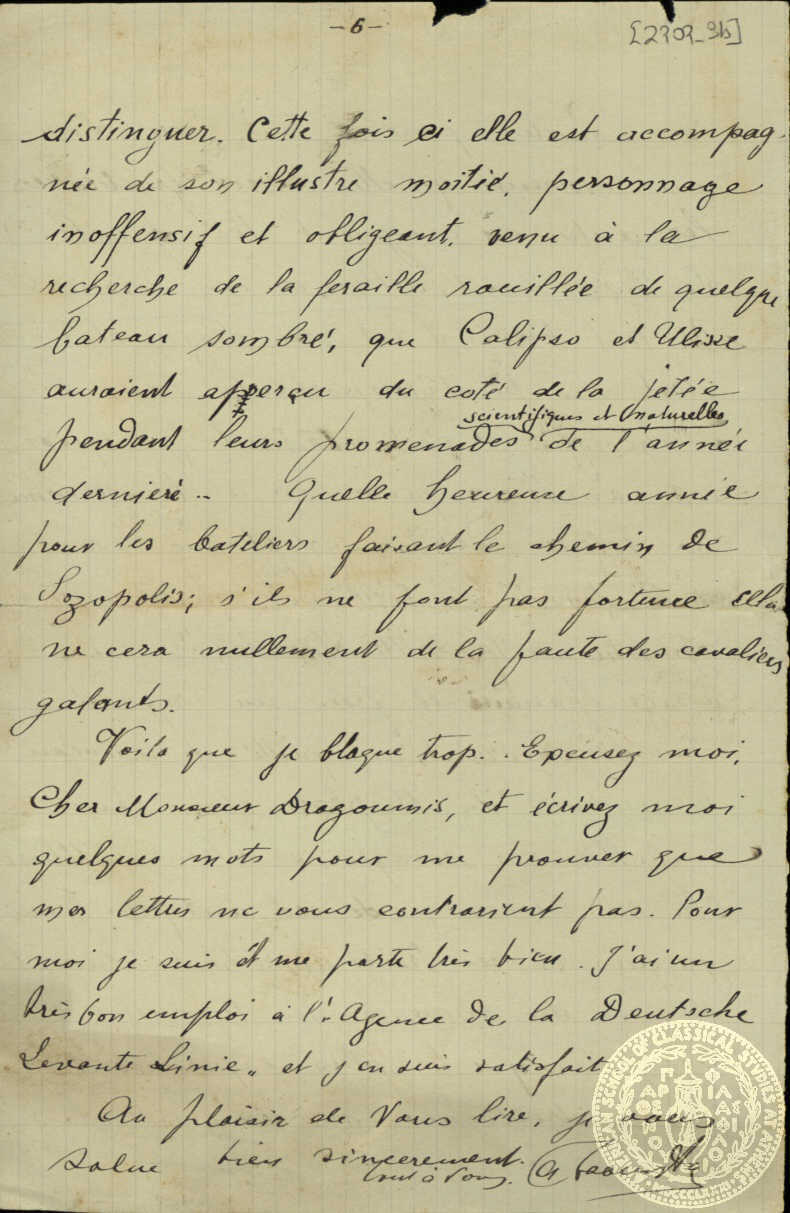 -6-
[2303_9b]
distinguer. Cette fois ci elle est accompag-
née de son illustre moitié, personnage
inoffensif et obligeant, venu à la
recherche de la feraille rouillée de quelque
bateau sombré, que Calipso et Ulisse
auraient aperçu du coté de la jetée
scientifiques et naturelles
pendant leurs promenades de l'année
derniere.. Quelle heureuse année
pour les bateliers faisant le chemin de
Sozopolis; s'ils ne font pas fortune cela
ne cera nullement de la faute des cavaliers
galants.
Voila que je blague trop. Excusez moi,
Cher Monsieur Dragoumis, et écrivez moi
quelques mots pour me prouver que
mes lettres ne vous contrarient pas. Pour
moi je suis et me porte très bien. J'ai un
très bon emploi à l'"Agence de la Deutsche
Levante Linie" et j'en suis satisfait
Au plaisir de Vous lire, je vous
salue bien sincerement.
tout à Vous.
AMERICAN SCHOOL OF CLASSICAL STUDIES AT ATHENS